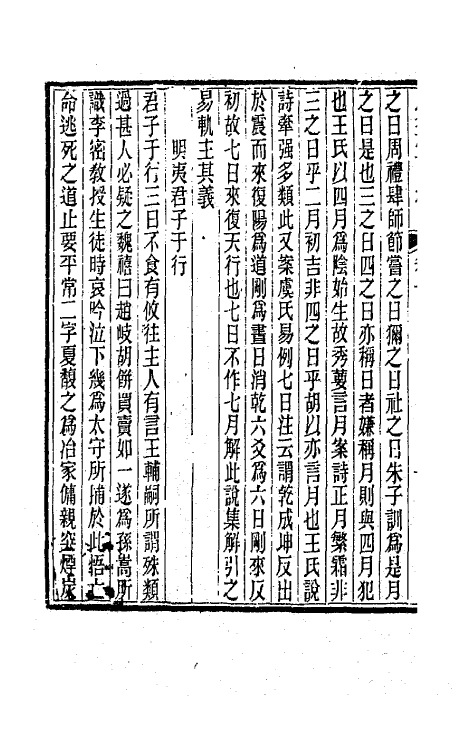 之日周禮肆師節嘗之日獮之日社之日朱子訓爲是月
之日是也三之日四之日亦稱日者嫌稱月則與四月犯
也王氏以四月爲陰始生故秀葽言月案詩正月繁霜非
三之日乎二月初吉非四之日乎胡以亦言月也王氏說
詩牽强多類此又案虞氏易例七日注云謂乾成坤反出
於震而來復陽爲道剛爲晝日消乾六爻爲六日剛來反
初故七日來復天行也七日不作七月解此說集解引之
易軌主其義
明夷君子于行
君子于行三日不食有攸往主人有言王輔嗣所謂殊類
過甚人必疑之魏禧曰趙岐胡餅買賣如一遂爲孫嵩所
識李密敎授生徒時哀吟泣下幾爲太守所捕於此悟亡
命逃死之道止要平常二字夏馥之爲冶家傭親突煙炭